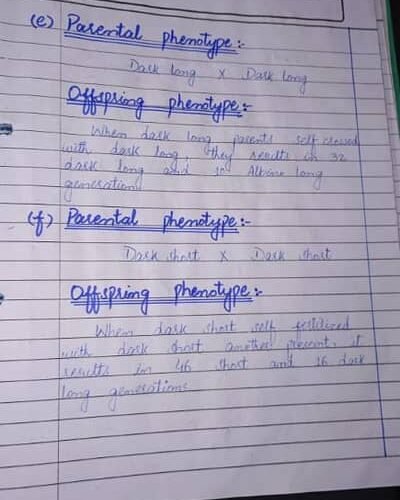 (e) Parental phenotype:-
Dark long × Dark long
Offspring phenotype:-
When dark long parents self crossed
with dark long, they results in 32
dark long and 10 Albino long
generation
(f) Parental phenotype:-
Dark short × Dark short
Offspring phenotype:-
When dark short self fertilized
with dark short another present, it
results in 46 short and 16 dark
long generations